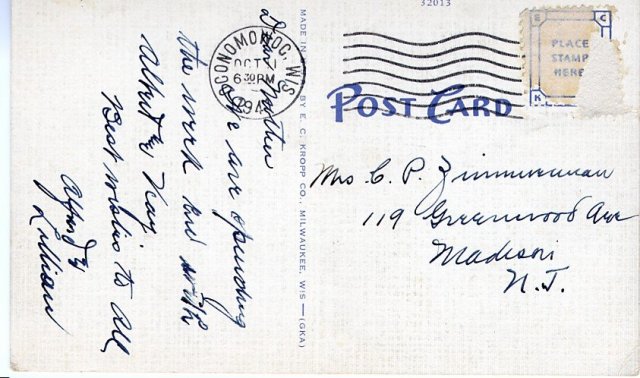 32013
PLACE
STAMP
HERE
E C
K
OCONOMOWOC, WIS.
OCT 1
6 30 PM
194
POST CARD
MADE IN BY E. C. KROPP CO., MILWAUKEE, WIS.—(GKA)
Dear Mother
We are spending
the week end with
Albert & Kay.
Best wishes to all
Alfred &
Lillian
Mrs C. P. Zimmerman
119 Greenwood Ave
Madison
N.J.